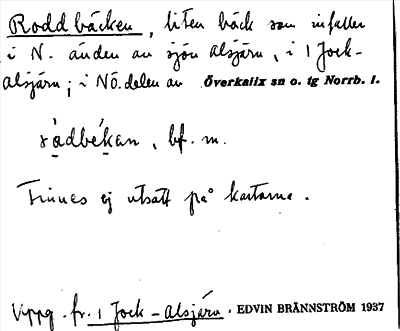 Roddbäcken, liten bäck som infaller
i N. änden av sjön Alsjärv, i 1 Jock-
alsjärv; i NÖ. delen av Överkalix sn o. tg Norrb. l.
ràdbékan, bf. m.
Finnes ej utsatt på kartorna.
Uppg. fr. 1 Jock-alsjärv. EDVIN BRÄNNSTRÖM 1937